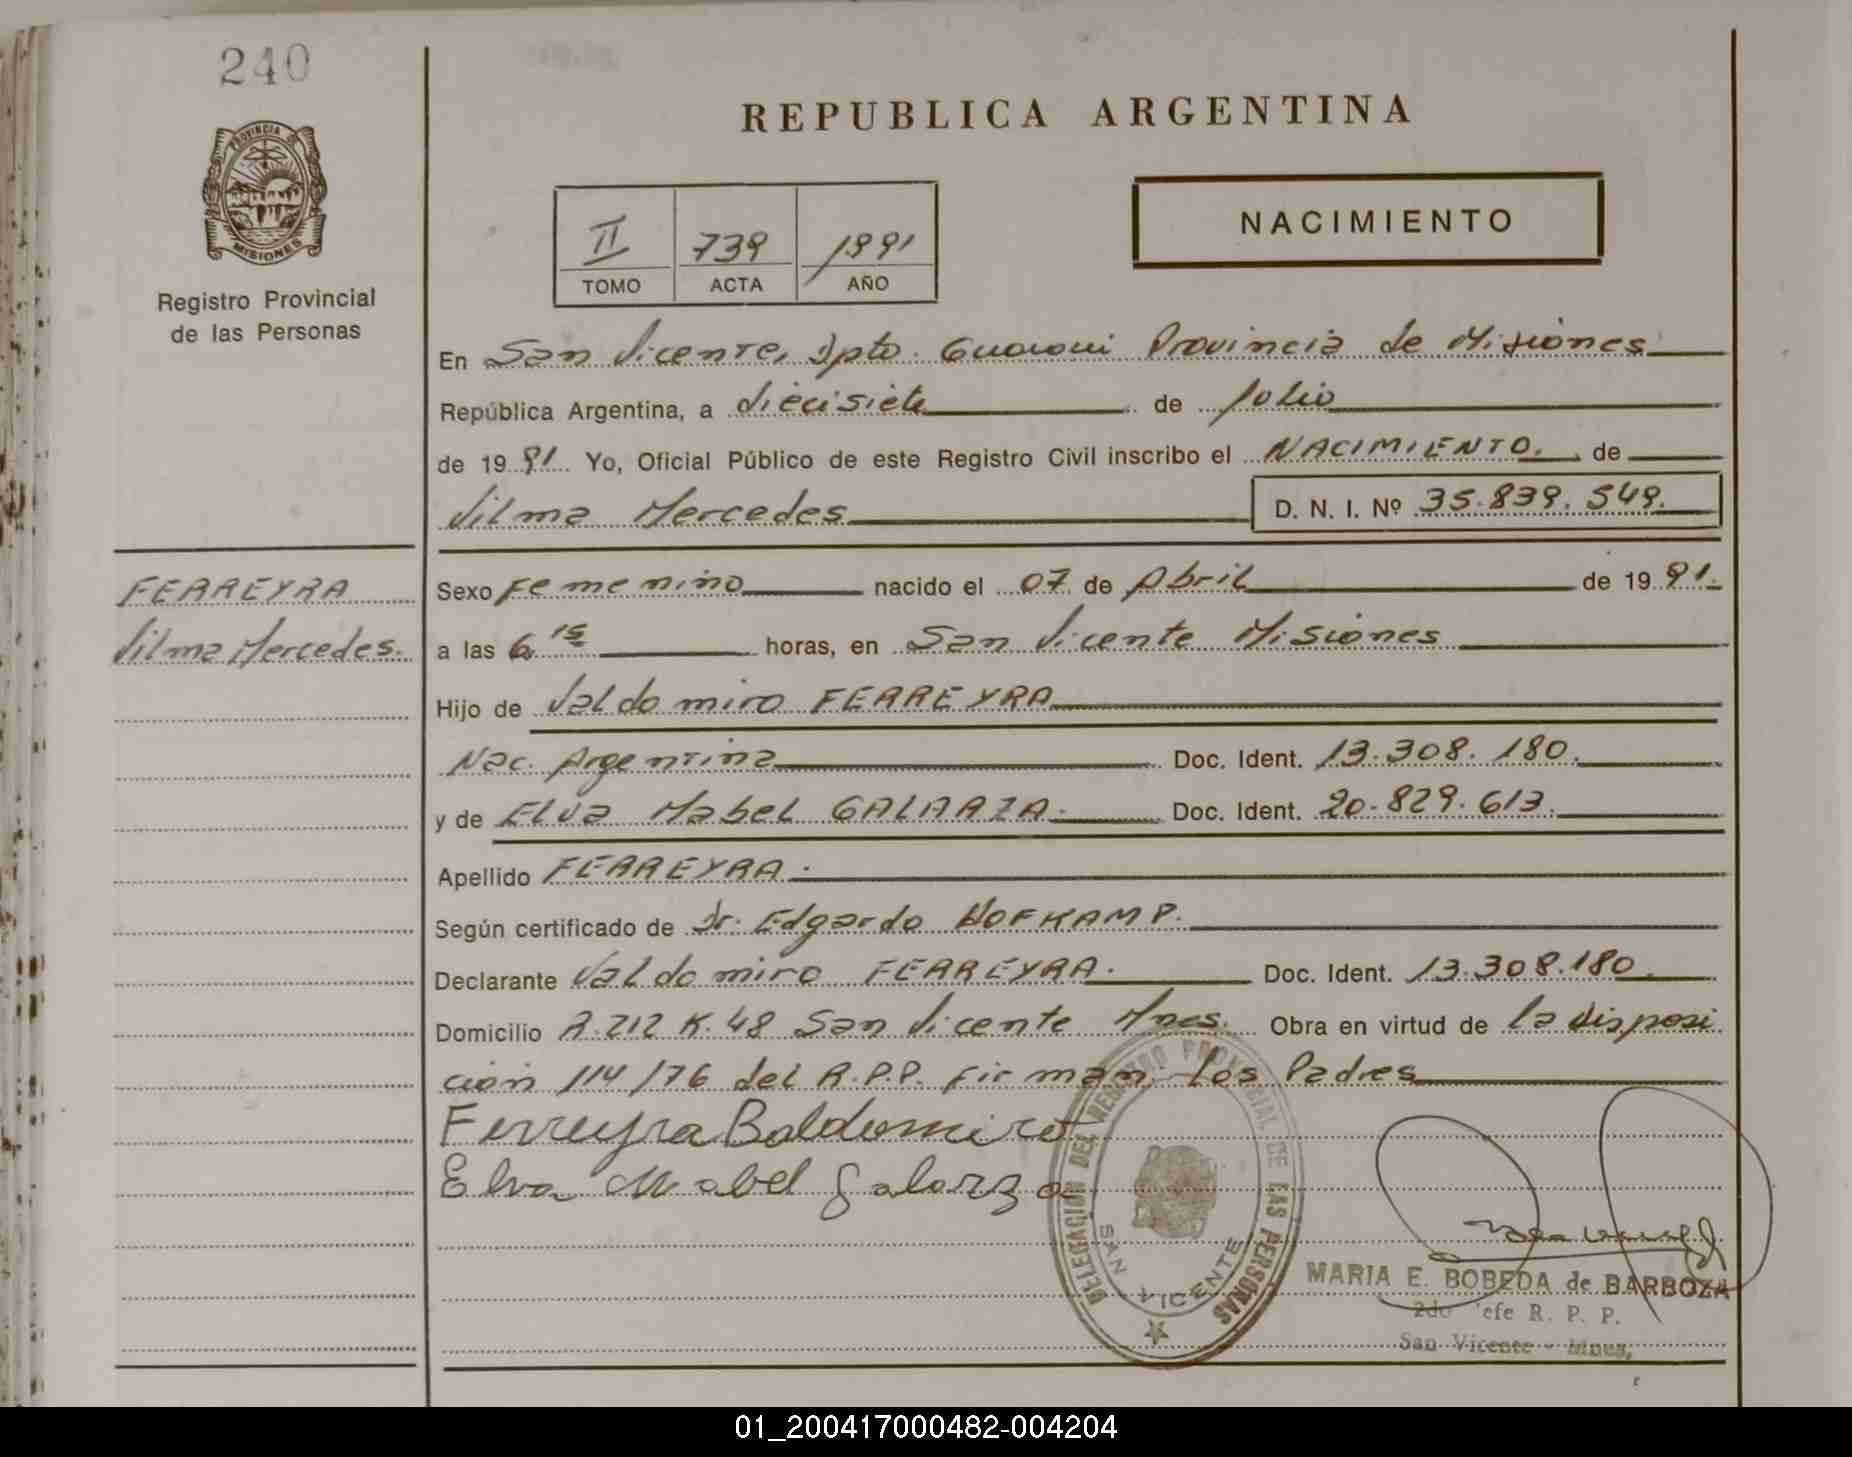 240
PROVINCIA DE
MISIONES
Registro Provincial
de las Personas
REPUBLICA ARGENTINA
II 739 1991
TOMO ACTA AÑO
NACIMIENTO
En San Vicente, Dpto. Guarani Provincia de Misiones
República Argentina, a diecisiete de Julio
de 1991 Yo, Oficial Público de este Registro Civil inscribo el NACIMIENTO. de
Vilma Mercedes D. N. I. Nº 35.839.549.
FERREYRA
Vilma Mercedes.
Sexo Femenino nacido el 07 de Abril de 1991.
a las 6 15 horas, en San Vicente Misiones
Hijo de Valdomiro FERREYRA
Nac. Argentina Doc. Ident. 13.308.180.
y de Elva Mabel GALARZA. Doc. Ident. 20.829.613.
Apellido FERREYRA.
Según certificado de Dr. Edgardo HOFKAMP.
Declarante Valdomiro FERREYRA. Doc. Ident. 13.308.180.
Domicilio R.212 K.48 San Vicente Mnes. Obra en virtud de la disposi
cion 114/76 del R.P.P. Firman: Los Padres
Ferreyra Baldomiro
Elva Mabel Galarza
DELEGACION DEL REGISTRO PROVINCIAL DE LAS PERSONAS
SAN VICENTE
MARIA E. BOBEDA de BARBOZA
2do efe R. P. P.
San Vicente - Mnes,
01_200417000482-004204